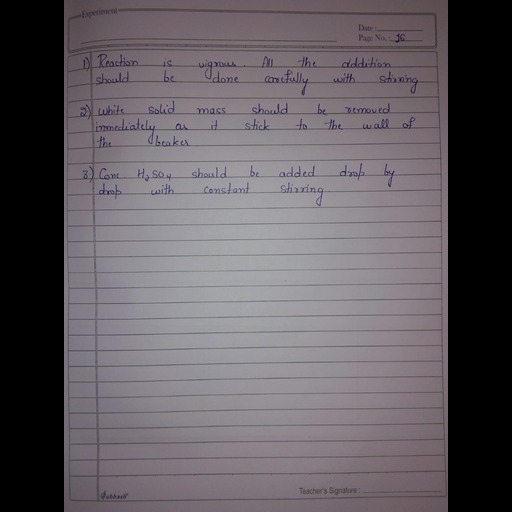 Experiment
Date :
Page No. : 16
1) Reaction is vigrous. All the addition
should be done carefully with stirring
2) White solid mass should be removed
immediately as it stick to the wall of
the beaker
3) Conc H2SO4 should be added drop by
drop with constant stirring
Teacher's Signature :